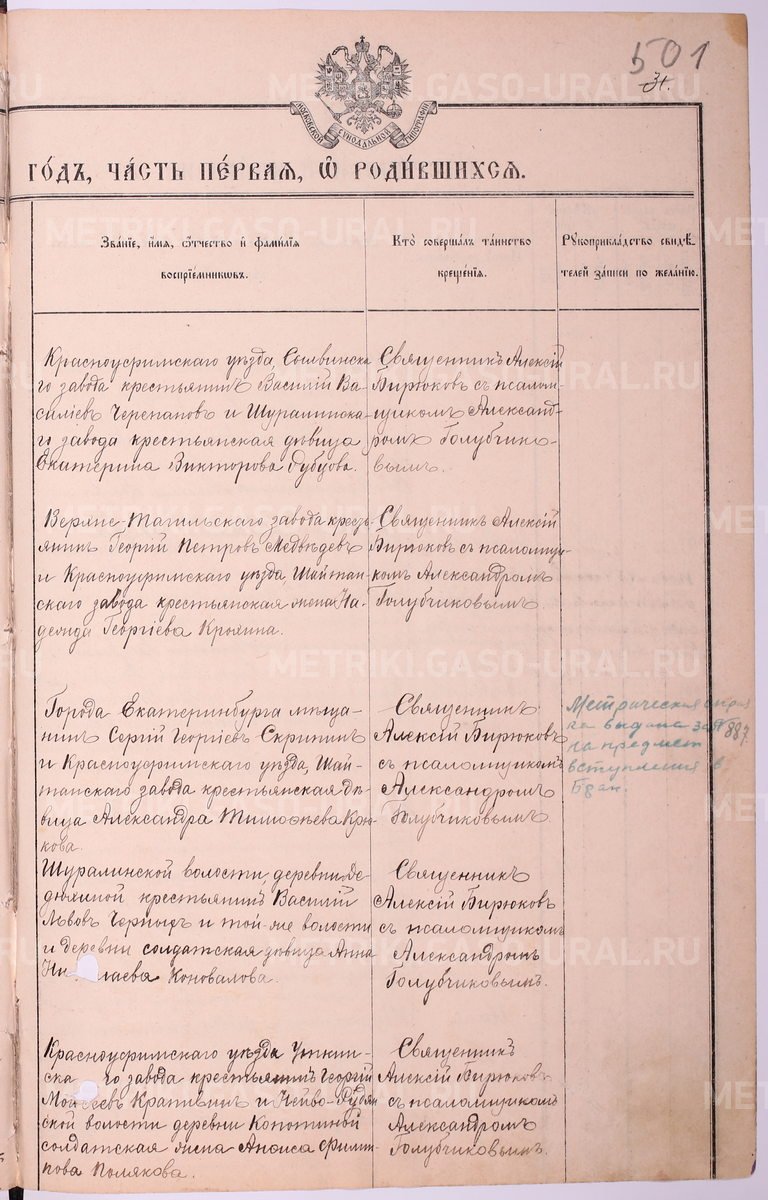 501
31.
МОСКОВСКОЙ СѴНОДАЛЬНОЙ ТИПОГРАФІИ
ГО́ДЪ, ЧА́СТЬ ПЕ́РВАЯ, Ѽ РОДИ́ВШИХСЯ.
Зва́нїе, и́мя, ѻ҆́тчество и҆ фами́лїя
воспрїе́мниковъ.
Кто̀ соверша́лъ та́инство
креще́нїя.
Рꙋкоприкла́дство свидѣ́-
телей за́писи по жела́нїю.
Красноуфимскаго уѣзда, Сылвинска-
го завода крестьянинъ Василій Ва-
силіевъ Черепановъ и Шуралинска-
го завода крестьянская дѣвица
Екатерина Викторова Рубцова.
Священникъ Алексій
Бирюковъ съ псалом-
щикомъ Александ-
ромъ Голубчико-
вымъ.
Верхне-Тагильскаго завода кресть-
янинъ Георгій Петровъ Медвѣдевъ
и Красноуфимскаго уѣзда, Шайтан-
скаго завода крестьянская жена На-
дежда Георгіева Крохина.
Священникъ Алексій
Бирюковъ съ псаломщи-
комъ Александромъ
Голубчиковымъ.
Города Екатеринбурга мѣща-
нинъ Сергій Георгіевъ Скрипинъ
и Красноуфимскаго уѣзда, Шай-
танскаго завода крестьянская дѣ-
вица Александра Тимоѳеева Крю-
кова.
Священникъ
Алексій Бирюковъ
съ псаломщикомъ
Александромъ
Голубчиковымъ.
Метрическая
выдана за № 887
на предмет
вступления в
брак.
Шуралинской волости, деревни Бе-
крестьянинъ Василій
Львовъ Черныхъ и той-же волости
и деревни солдатская дѣвица Анна
Ни лаева Коновалова.
Священникъ
Алексій Бирюковъ
съ псаломщикомъ
Александромъ
Голубчиковымъ.
Красноуфимскаго уѣзда Уткин-
ска го завода крестьянинъ Георгій
Мои сеевъ Крапивинъ и Нейво-Рудян-
ской волости деревни Копотиной
солдатская жена Анфиса Филип-
пова Полякова.
Священникъ
Алексій Бирюковъ
съ псаломщикомъ
Александромъ
Голубчиковымъ.
METRIKI.GASO-URAL.RU